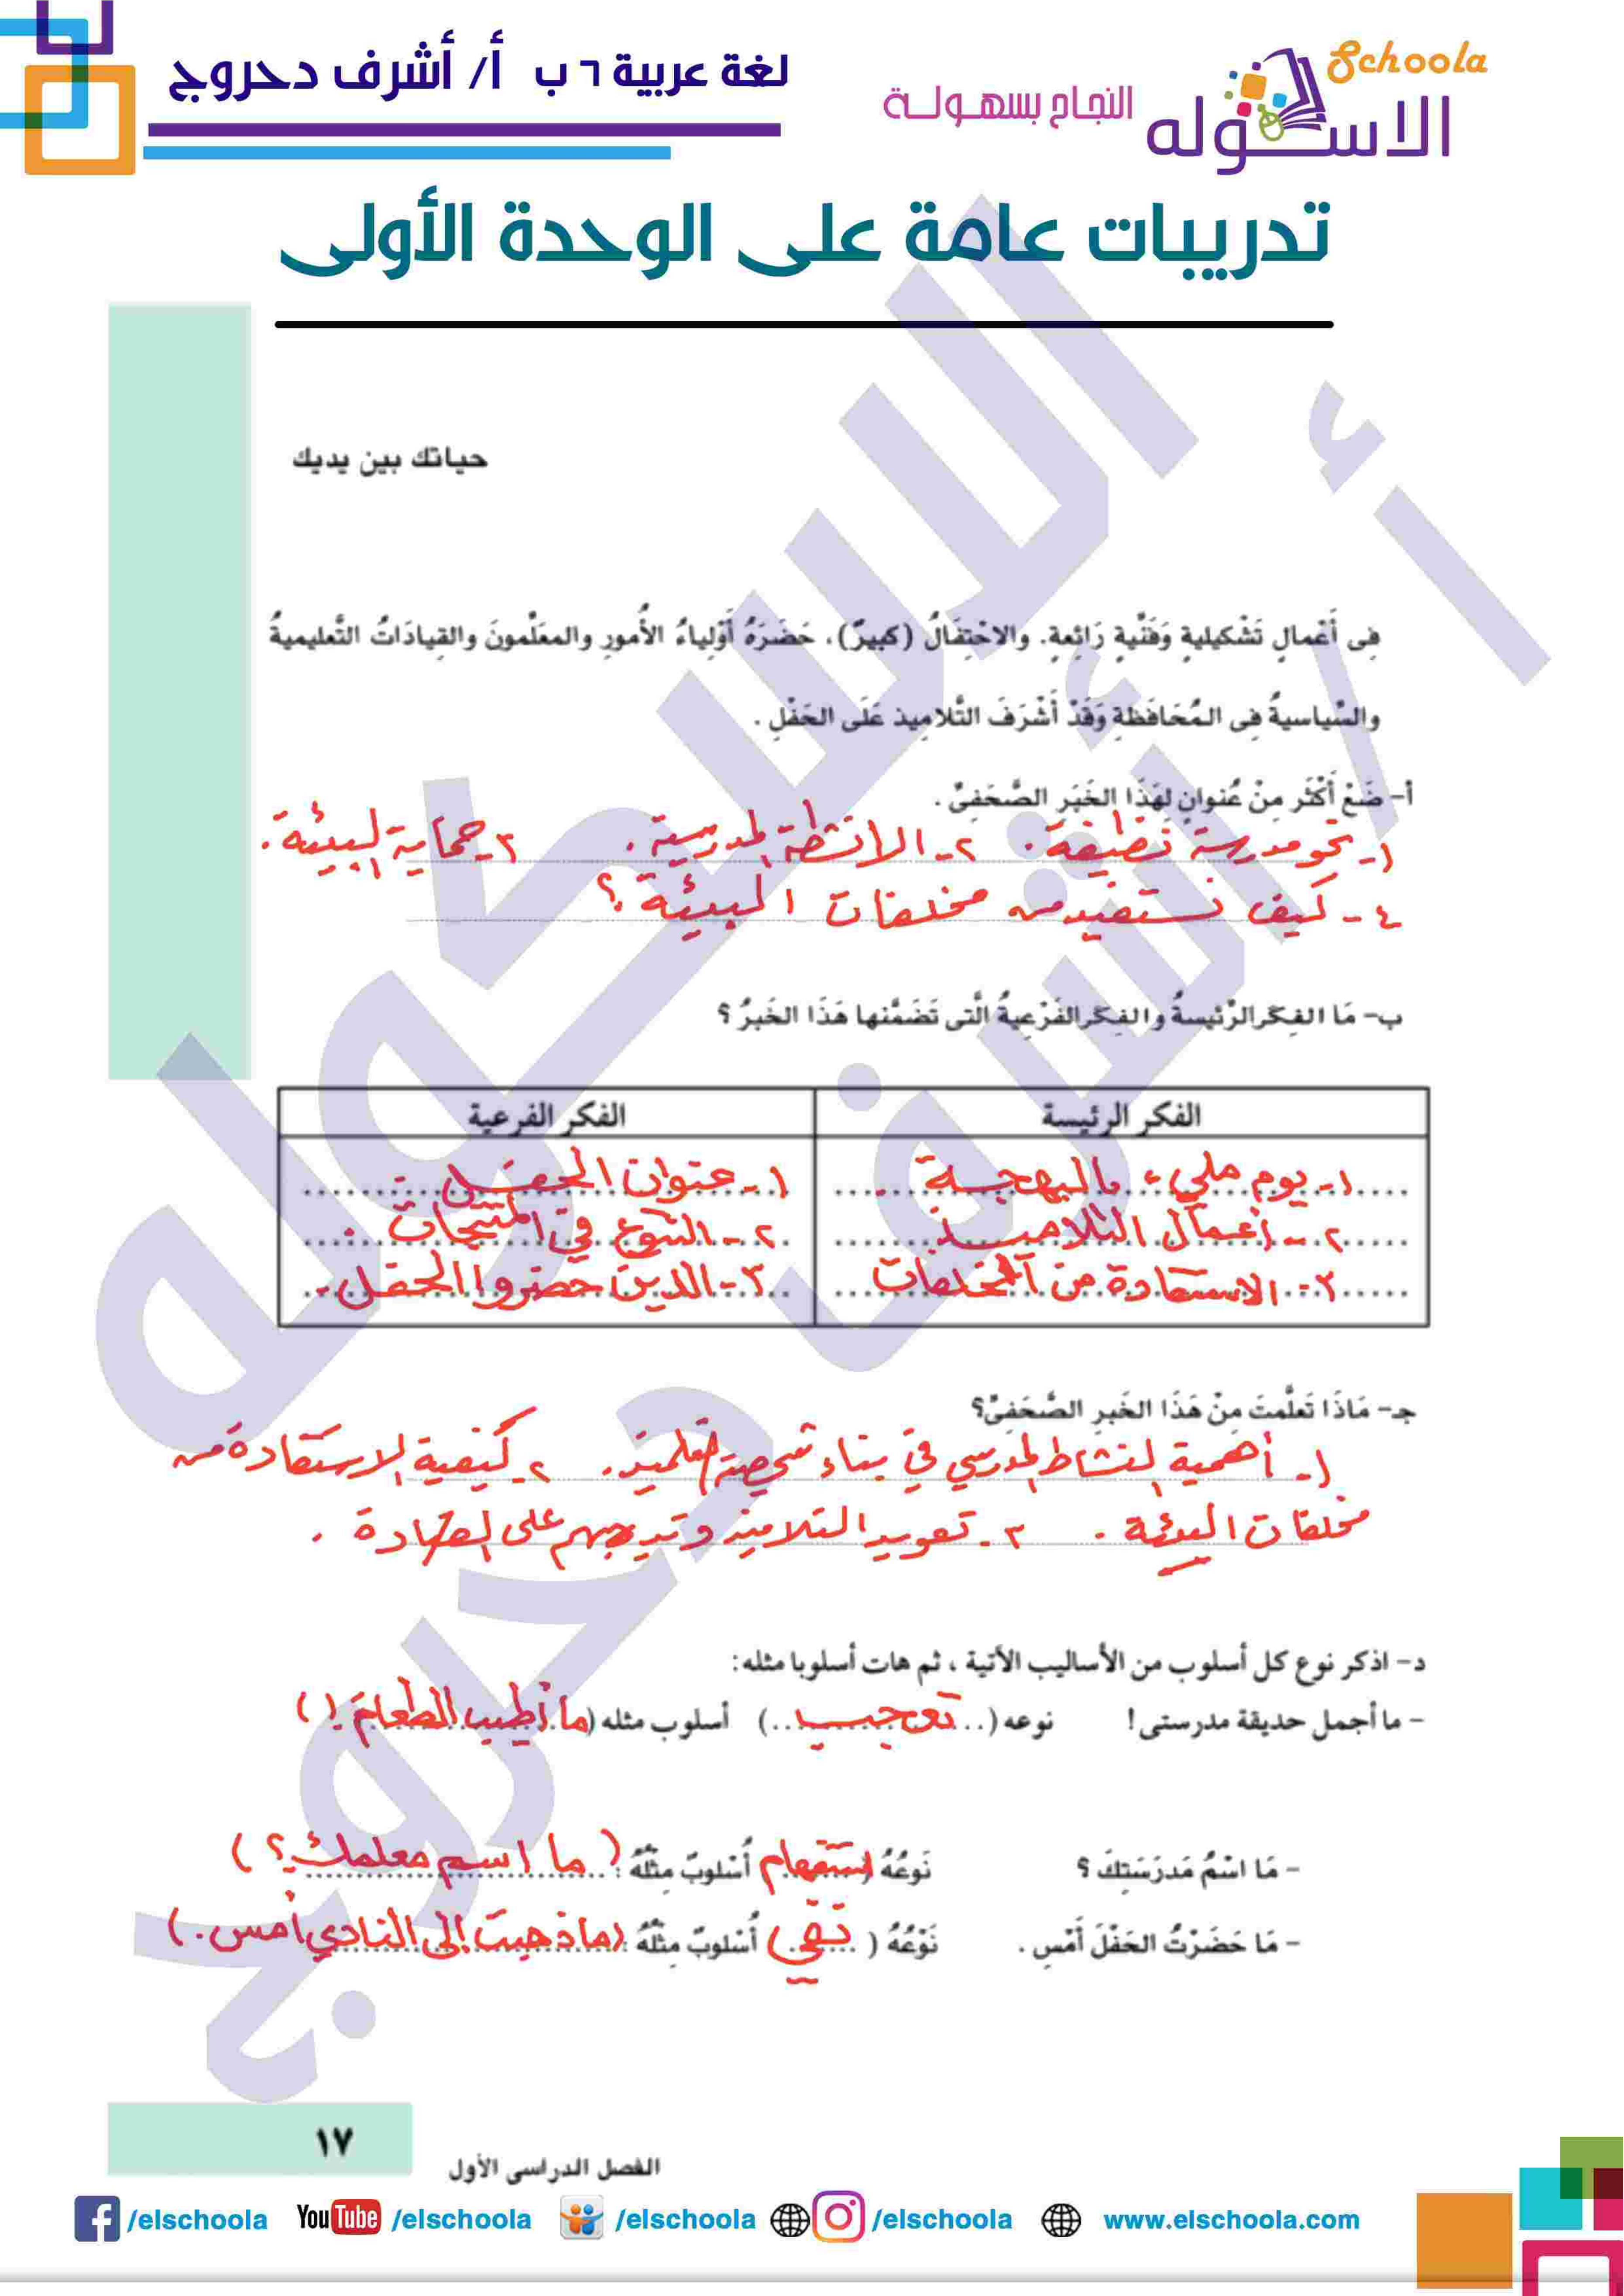 لغة عربية ٦ ب أ/ أشرف دحروج
Schoola
الاسكوله
النجاح بسهولة
تدريبات عامة على الوحدة الأولى
حياتك بين يديك
فِى أَعْمالٍ تَشْكيليةٍ وَفَنِّيةٍ رَائِعةٍ. والاحْتِفَالُ (كبيرٌ)، حَضَرَهُ أَوْلِياءُ الأُمورِ والمعَلِّمونَ والقِيادَاتُ التَّعليميةُ
والسِّياسيةُ فِى المُحَافَظةِ وَقَدْ أَشْرَفَ التَّلاميذ عَلَى الحَفْلِ .
أ- ضَعْ أَكْثَر مِنْ عُنوانٍ لِهَذَا الخَبَرِ الصَّحَفِىِّ .
١- نحو مدرسة نظيفة. ٢- الأنشطة المدرسية. ٣- حماية البيئة.
٤- كيف نستفيد من مخلفات البيئة ؟
ب- مَا الفِكَر الرَّئيسةُ والفِكَر الفَرْعِيةُ الَّتى تَضَمَّنها هَذَا الخَبرُ ؟
الفكر الرئيسة الفكر الفرعية
١- يوم مليء بالبهجة ١- عنوان الحفل.
٢- أعمال التلاميذ ٢- التنوع في المنتجات.
٣- الاستفادة من المخلفات ٣- الذين حضروا الحفل.
جـ- مَاذَا تَعلَّمتَ مِنْ هَذَا الخَبرِ الصَّحَفِىِّ؟
١- أهمية النشاط المدرسي في بناء شخصية التلميذ. ٢- كيفية الاستفادة من
مخلفات البيئة. ٣- تعويد التلاميذ وتدريبهم على القيادة.
د- اذكر نوع كل أسلوب من الأساليب الآتية ، ثم هات أسلوبا مثله:
- ما أجمل حديقة مدرستى ! نوعه (تعجب) أسلوب مثله (ما أطيب الطعام!)
- مَا اسْمُ مَدرَسَتِكَ ؟ نَوعُهُ (استفهام) أُسْلوبٌ مِثْلُهُ : (ما اسم معلمك؟)
- مَا حَضَرْتُ الحَفْلَ أَمْسِ . نَوْعُهُ (نفي) أُسْلوبٌ مِثْلُهُ : (ما ذهبت إلى النادي أمس.)
١٧
الفصل الدراسى الأول
/elschoola YouTube /elschoola /elschoola /elschoola www.elschoola.com
الاسكوله
أ / أشرف دحروج